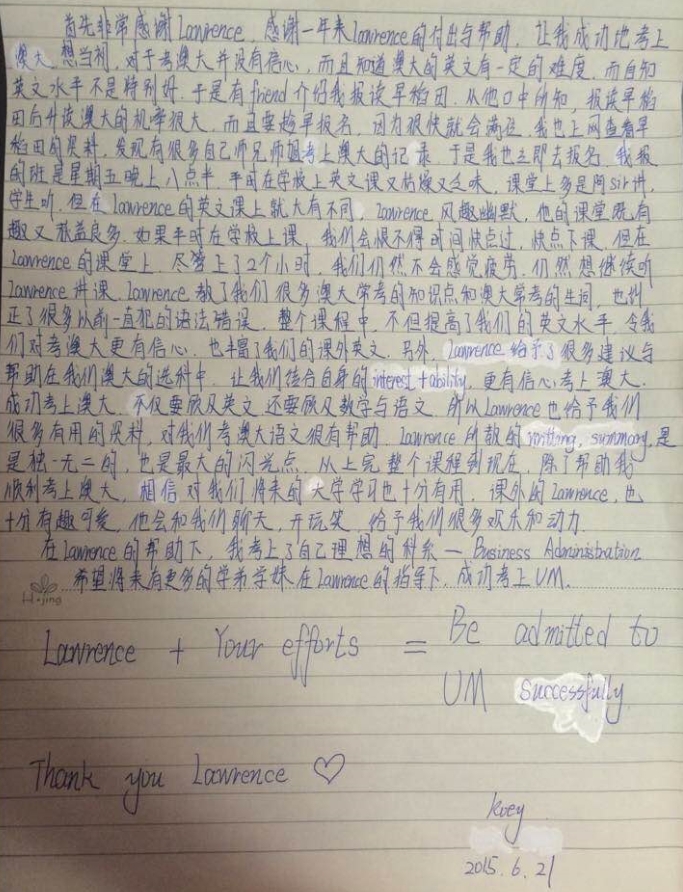 首先非常感谢Lawrence，感谢一年来Lawrence的付出与帮助，让我成功地考上
澳大，想当初，对于考澳大并没有信心，而且知道澳大的英文有一定的难度，而自知
英文水平不是特别好，于是有friend介绍我报读早稻田，从他口中所知，报读早稻
田后升读澳大的机率很大，而且要趁早报名，因为很快就会满位，我也上网查看早
稻田的资料，发现有很多自己师兄师姐考上澳大的记录，于是我也立即去报名，我报
的班是星期五晚上八点半，平时在学校上英文课又枯燥又乏味，课堂上多是阿sir讲，
学生听，但在Lawrence的英文课上就大有不同，Lawrence风趣幽默，他的课堂既有
趣又获益良多，如果平时在学校上课，我们会恨不得时间快点过，快点下课，但在
Lawrence的课堂上，尽管上了2个小时，我们仍然不会感觉疲劳，仍然想继续听
Lawrence讲课，Lawrence教了我们很多澳大常考的知识点和澳大常考的生词，也纠
正了很多以前一直犯的语法错误，整个课程中，不但提高了我们的英文水平，令我
们对考澳大更有信心，也丰富了我们的课外英文，另外，Lawrence给予了很多建议与
帮助在我们澳大的选科中，让我们结合自身的interest+ability，更有信心考上澳大，
成功考上澳大，不仅要顾及英文，还要顾及数学与语文，所以Lawrence也给予我们
很多有用的资料，对我们考澳大语文很有帮助，Lawrence所教的writting，summary，是
是独一无二的，也是最大的闪光点，从上完整个课程到现在，除了帮助我
顺利考上澳大，相信对我们将来的大学学习也十分有用，课外的Lawrence，也
十分有趣可爱，他会和我们聊天，开玩笑，给予我们很多欢乐和动力.
在Lawrence的帮助下，我考上了自己理想的科系—Business Administration
希望将来有更多的学弟学妹在Lawrence的指导下，成功考上UM.
Lawrence + Your efforts = Be admitted to
UM successfully
Thank you Lawrence ♡
koey
2015.6.21